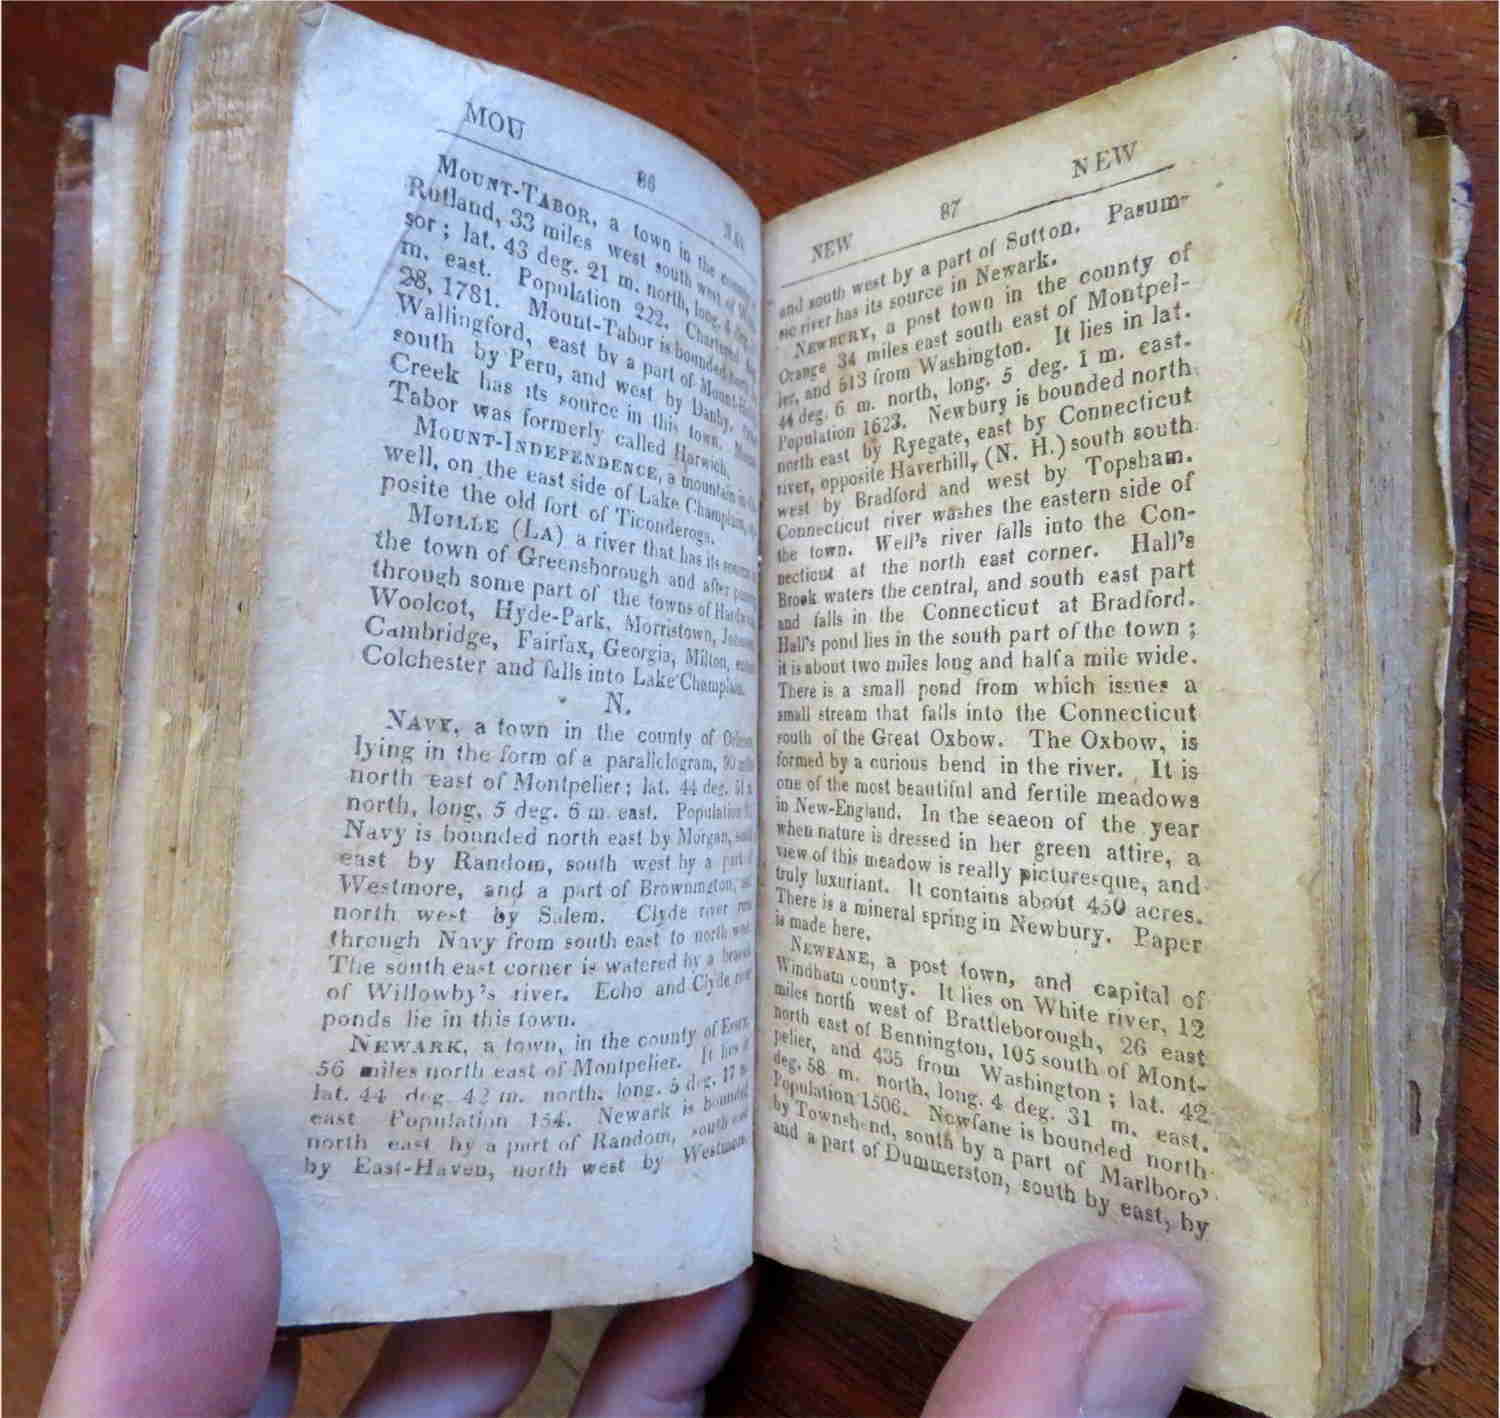 MOU
86
MOUNT-TABOR, a town in the
Rutland, 33 miles west south west of
sor; lat. 43 deg. 21 m. north, long. 4 deg.
m. east. Population 222. Chartered
28, 1781. Mount-Tabor is bounded
Wallingford, east by a part of
south by Peru, and west by Danby.
Creek has its source in this town.
Tabor was formerly called Harwich.
MOUNT-INDEPENDENCE, a mountain
well, on the east side of Lake Champlain,
posite the old fort of Ticonderoga.
MOILLE (LA) a river that has its source
the town of Greensborough and after
through some part of the towns of
Woolcot, Hyde-Park, Morristown,
Cambridge, Fairfax, Georgia, Milton,
Colchester and falls into Lake Champlain.
N.
NAVY, a town in the county of
lying in the form of a paralielogram,
north east of Montpelier; lat. 44 deg.
north, long, 5 deg. 6 m. east. Population
Navy is bounded north east by Morgan,
east by Random, south west by a part
Westmore, and a part of Brownington,
north west by Salem. Clyde river
through Navy from south east to north
The south east corner is watered by a
of Willowby's river. Echo and Clyde
ponds lie in this town.
NEWARK, a town, in the county of Essex,
56 miles north east of Montpelier. It lies
lat. 44 deg. 42 m. north, long. 5 deg. 17
east Population 154. Newark is bounded
north east by a part of Random,
by East-Haven, north west by
NEW
87
NEW
and south west by a part of Sutton. Pasum-
sic river has its source in Newark.
NEWBURY, a post town in the county of
Orange 34 miles east south east of Montpel-
ier, and 513 from Washington. It lies in lat.
44 deg. 6 m. north, long. 5 deg. 1 m. east.
Population 1623. Newbury is bounded north
north east by Ryegate, east by Connecticut
river, opposite Haverhill, (N. H.) south south
west by Bradford and west by Topsham.
Connecticut river washes the eastern side of
the town. Well's river falls into the Con-
necticut at the north east corner. Hall's
Brook waters the central, and south east part
and falls in the Connecticut at Bradford.
Hall's pond lies in the south part of the town;
it is about two miles long and half a mile wide.
There is a small pond from which issues a
small stream that falls into the Connecticut
south of the Great Oxbow. The Oxbow, is
formed by a curious bend in the river. It is
one of the most beautiful and fertile meadows
in New-England. In the seaeon of the year
when nature is dressed in her green attire, a
view of this meadow is really picturesque, and
truly luxuriant. It contains about 450 acres.
There is a mineral spring in Newbury. Paper
is made here.
NEWFANE, a post town, and capital of
Windham county. It lies on White river, 12
miles north west of Brattleborough, 26 east
north east of Bennington, 105 south of Mont-
pelier, and 435 from Washington; lat. 42
deg. 58 m. north, long. 4 deg. 31 m. east.
Population 1506. Newfane is bounded north
by Townshend, south by a part of Marlboro'
and a part of Dummerston, south by east, by